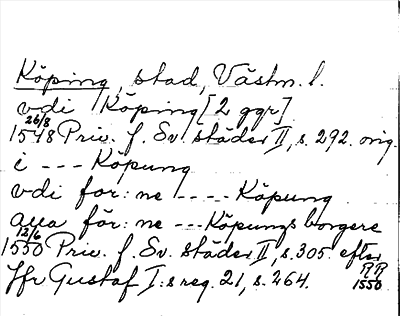 Köping, stad, Västm. l.
vdi Köping [2 ggr]
26/8
1548 Priv. f. Sv. städer II, s. 292. orig.
i --- Köpung
vdi for:ne ----- Köpung
alla för:ne --- Köpungs borgere
12/6
1550 Priv. f. Sv. städer II, s. 305. efter RR 1550
Jfr Gustaf I:s reg. 21, s. 264.